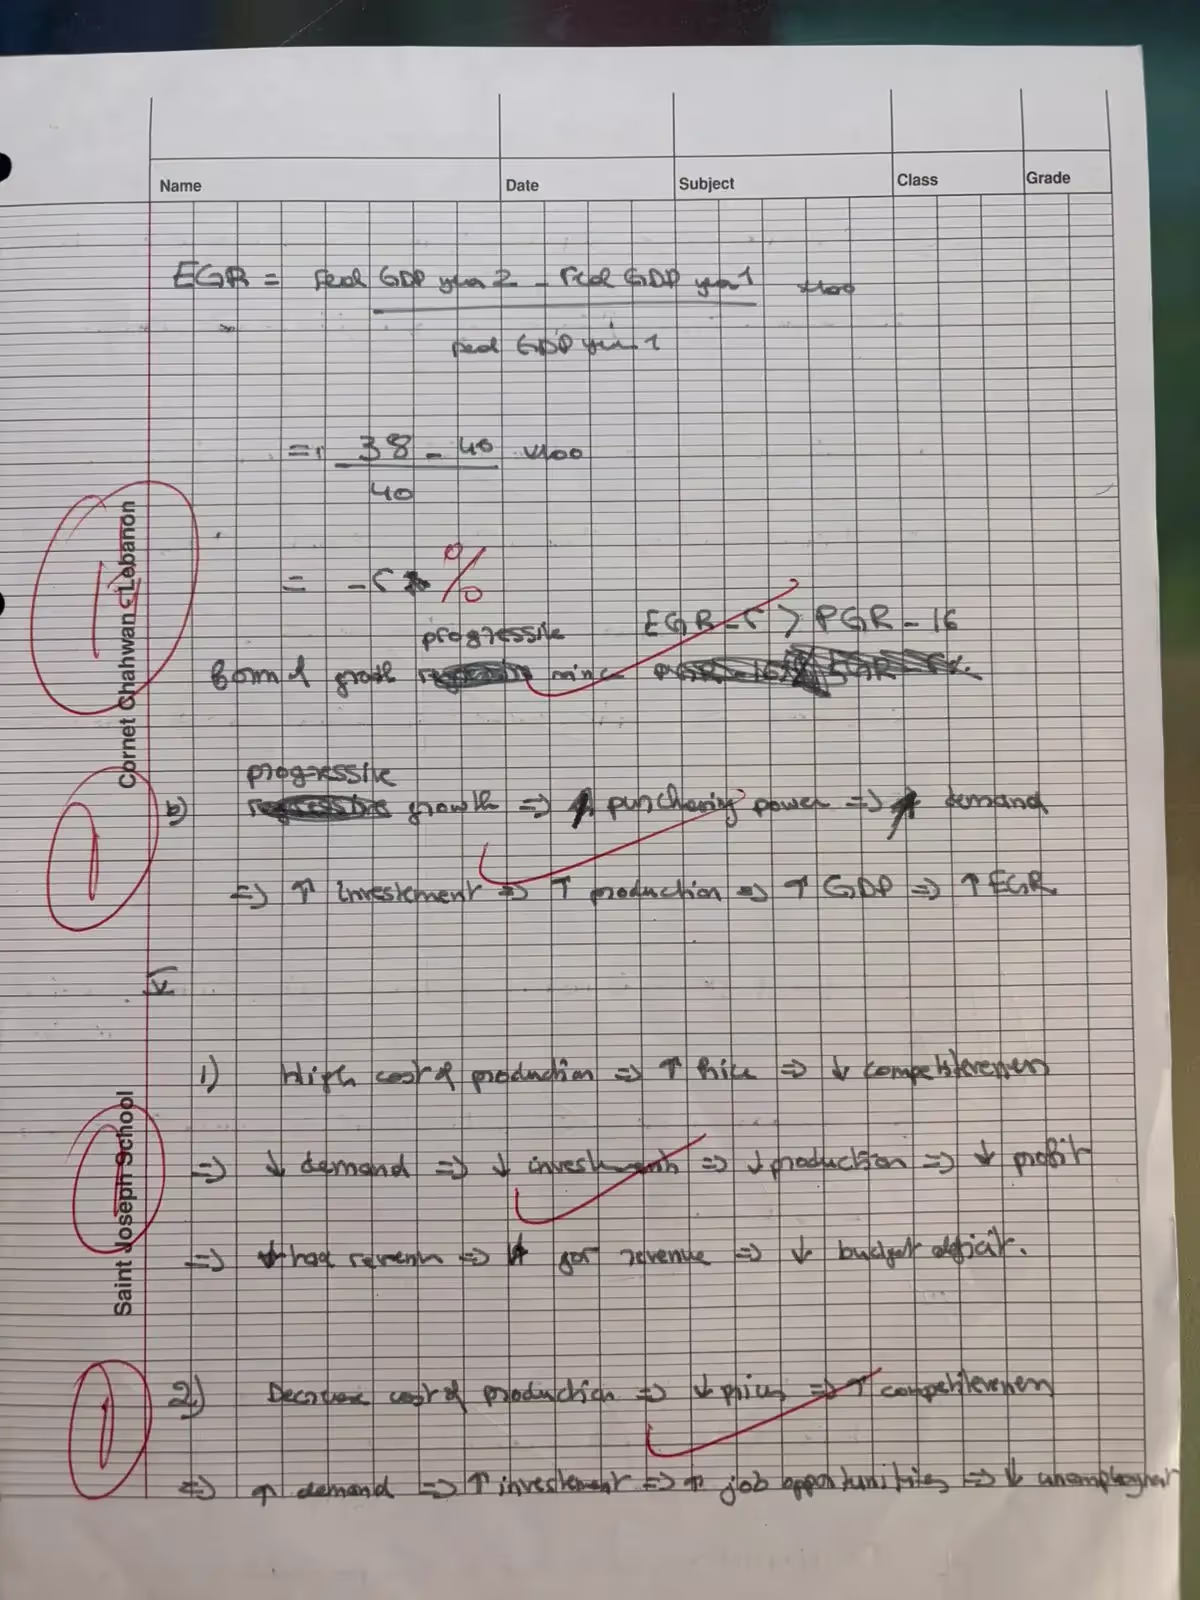 Name Date Subject Class Grade
EGR = real GDP year 2 - real GDP year 1 x100
real GDP year 1
= 38 - 40 x100
40
= -5 %
progressive EGR -5 > PGR -16
form of growth since
Cornet Chahwan - Lebanon
progressive
b) growth => ↑ purchasing power => ↑ demand
=> ↑ investement => ↑ production => ↑ GDP => ↑ EGR
V
1) High cost of production => ↑ Price => ↓ competitiveness
=> ↓ demand => ↓ investments => ↓ production => ↓ profit
=> ↓ => ↓ gov revenue => ↓ budget deficit.
Saint Joseph School
2) Decrease cost of production => ↓ prices => ↑ competitiveness
=> ↑ demand => ↑ investement => ↑ job opportunities => ↓ unemployment